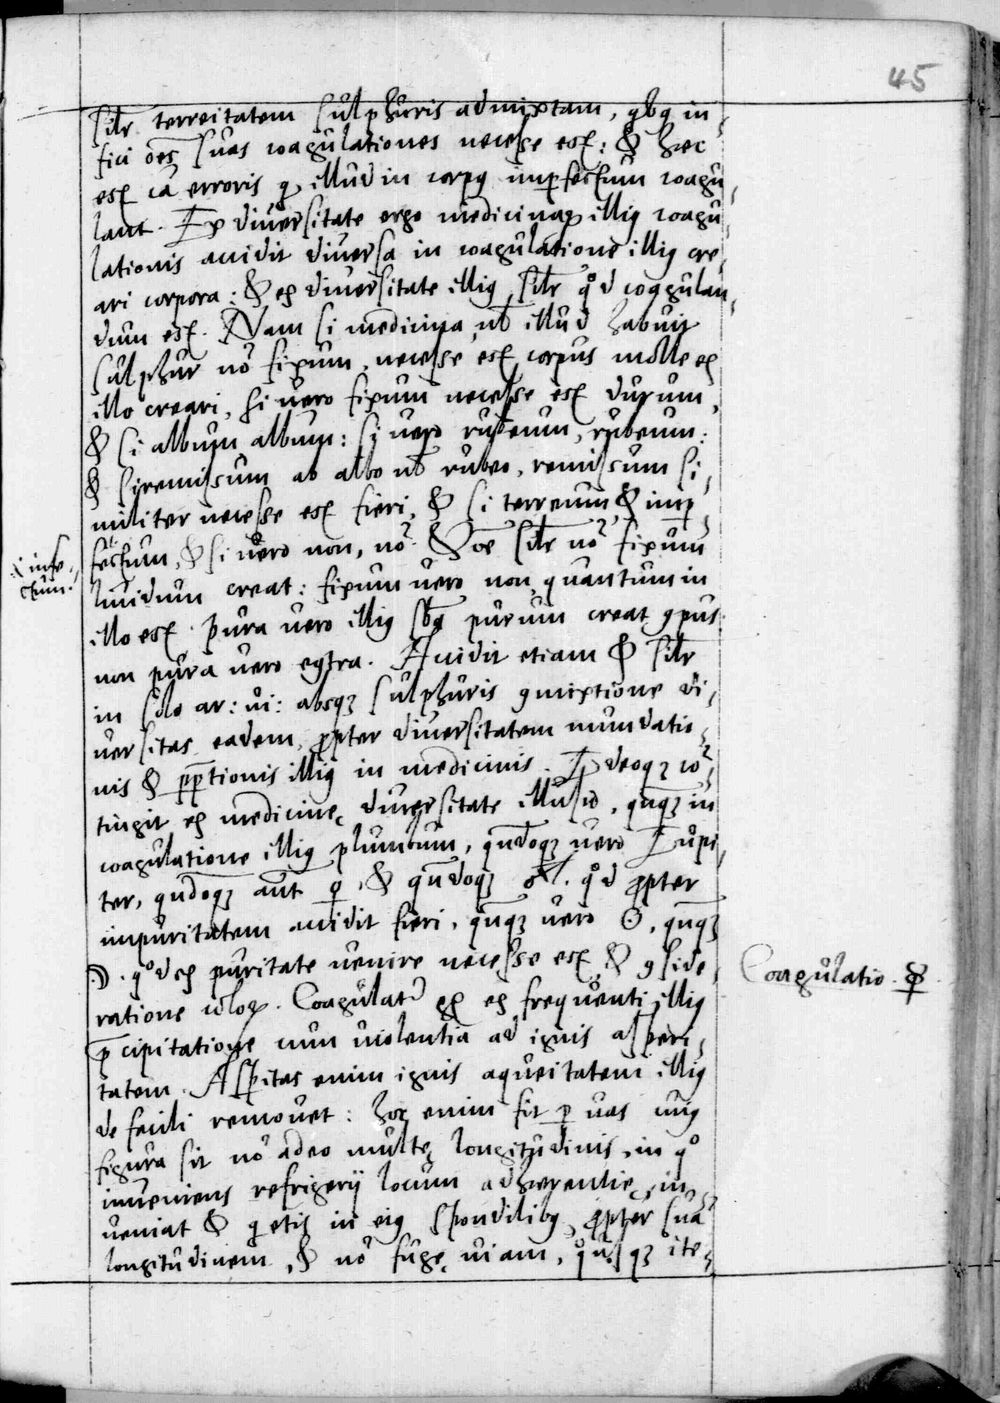 45
silr terreitatem sulphuris admixtam, qbq in,
fici oēs suas coagulationes necesse est: & hęc
est cā erroris q illud in corpq imperfectum coagu,
lant. Ex diversitate ergo medicinaꝝ illiq coagu,
lationis accidit diversa in coagulatione illiq cre,
ari corpora: & ex diversitate illiq, silr qͦd coagulan,
dum est. Nam si medicina, ul illud habuit
sulphur nō fixum, necesse est corpus molle ex
illo creari, si vero fixum necesse est durum,
& si album album: si vero rubeum, rubeum:
& si remissum ab albo ul rubeo, remissum si,
militer necesse est fieri, & si terreum & imp,
fectum, & si vero non, nō. & oē silr nō fixum
∴ infe,
ctum:
lividum creat: fixum vero non, quantum in
illo est. Pura vero illiq sbā purum creat ꝯpus
non pura vero eꝯtra. Accidit etiam & silr
in solo ar: vi: absqꝫ sulphuris ꝯmixtione di,
versitas eadem, propter diversitatem mundatio,
nis & ppationis illiq in medicinis. Ideoqꝫ cō,
tingit ex medicinę diversitate illud, qnqꝫ in
coagulatione illiq plumbum, qndoqꝫ vero Iupi,
ter, qndoqꝫ aūt ♀, & qndoqꝫ ♂. qͦd propter
impuritatem accidit fieri, qnqꝫ vero ☉, qnqꝫ
☽. qͦd ex puritate venire necesse est, & ꝯside,
Coagulatio ☿
ratione coloꝝ. Coagulat' ex frequenti illiq
pcipitatione cum violentia ad ignis asperi,
tatem. Aspitas enim ignis aqueitatem illiq
de facili removet: hoc enim fit p vas cuiq
figura sit nō adeo multę longitudinis, in qͦ
inveniens refrigerii locum adhęrentię, in,
veniat & qetis in eiq spondilibq, propter suā
longitudinem, & nō fugę viam, qͦusqꝫ ite,